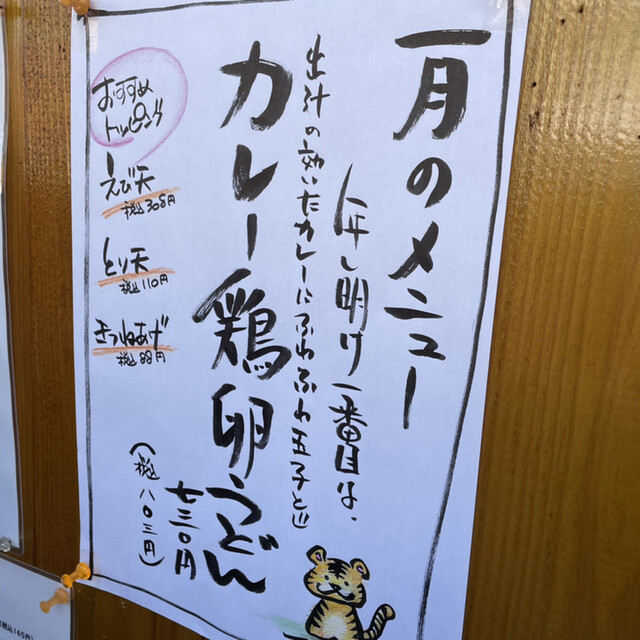 一月のメニュー
年し明け一番は、
出汁の効いたカレーにふわふわ玉子と
カレー鶏卵うどん
七三〇円
（税込八〇三円）
おすすめ
トッピング
えび天
税込308円
とり天
税込110円
きつねあげ
税込88円
（税込165円）